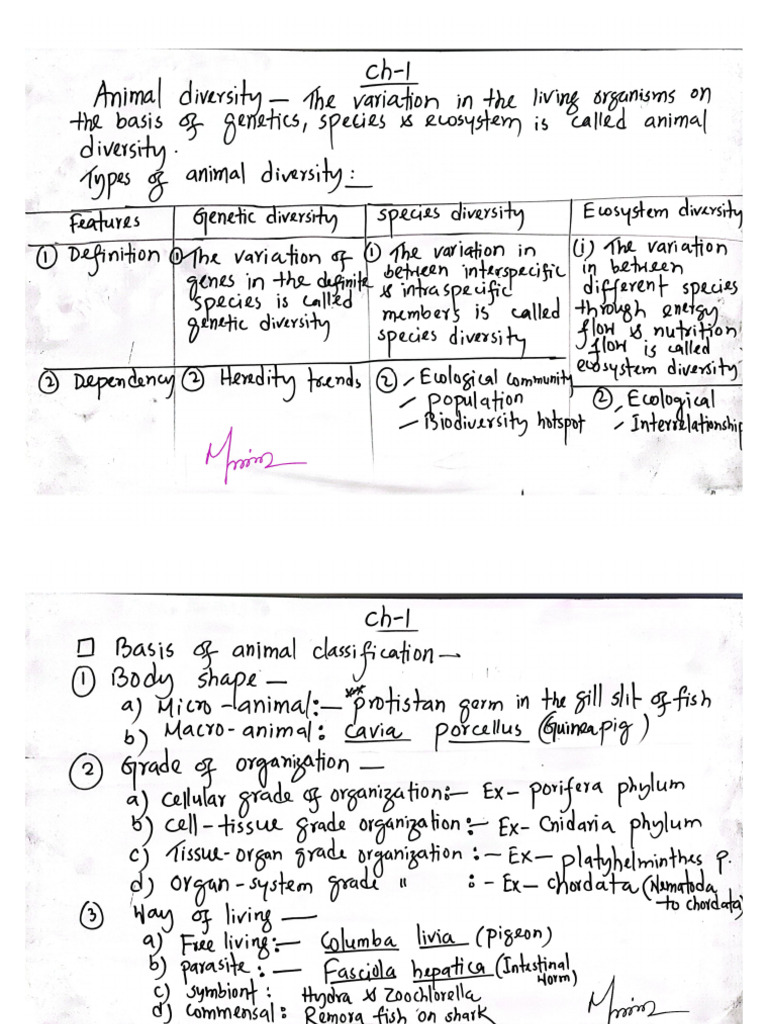 Ch-1
Animal diversity — The variation in the living organisms on
the basis of genetics, species & ecosystem is called animal
diversity.
Types of animal diversity: —
Features
Genetic diversity
species diversity
Ecosystem diversity
① Definition
① The variation of
genes in the definite
species is called
genetic diversity
① The variation in
between interspecific
& intraspecific
members is called
species diversity
(i) The variation
in between
different species
through energy
flow & nutrition
flow is called
ecosystem diversity
② Dependency
② Heredity trends
② - Ecological community
- population
- Biodiversity hotspot
② - Ecological
- Interrelationship
Ch-1
□ Basis of animal classification —
① Body shape —
a) Micro-animal: — ** protistan germ in the gill slit of fish
b) Macro-animal: Cavia porcellus (Guinea pig)
② Grade of organization —
a) Cellular grade of organization: — Ex- porifera phylum
b) Cell-tissue grade organization: — Ex- Cnidaria phylum
c) Tissue-organ grade organization: — Ex — platyhelminthes p.
d) Organ-system grade " : - Ex — chordata (Nematoda
to chordata)
③ Way of living —
a) Free living: — Columba livia (pigeon)
b) parasite: — Fasciola hepatica (Intestinal
worm)
c) symbiont: Hydra & Zoochlorella
d) commensal: Remora fish on shark